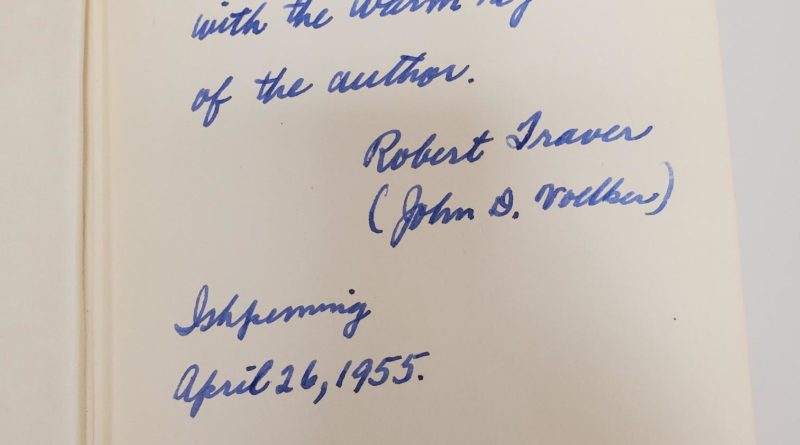 with the warm reg
of the author.
Robert Traver
(John D. Voelker)
Ishpeming
April 26, 1955.